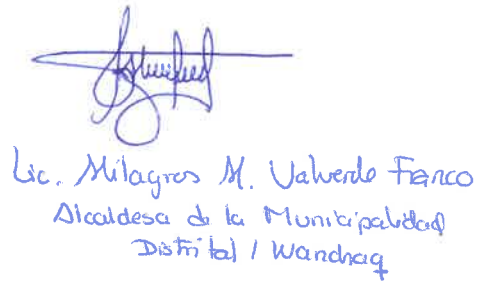 Lic. Milagros M. Valverde Franco
Alcaldesa de la Municipalidad
Distrital / Wanchaq